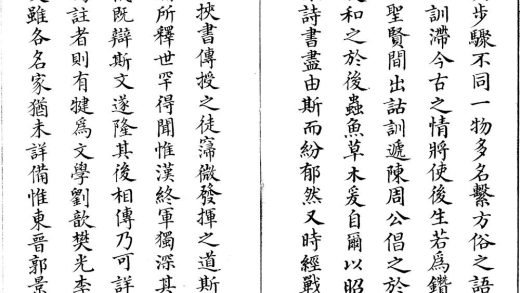 步驟不同一物多名繫方俗之語
訓滯今古之情將使後生若爲鑽
聖賢間出詁訓遞陳周公倡之於
和之於後蟲魚草木爰自爾以昭
詩書盡由斯而紛郁然又時經戰
挾書傳授之徒寖微發揮之道斯
所釋世罕得聞惟漢終軍獨深其
既辯斯文遂隆其後相傳乃可詳
註者則有犍爲文學劉歆樊光李
雖各名家猶未詳備惟東晉郭景